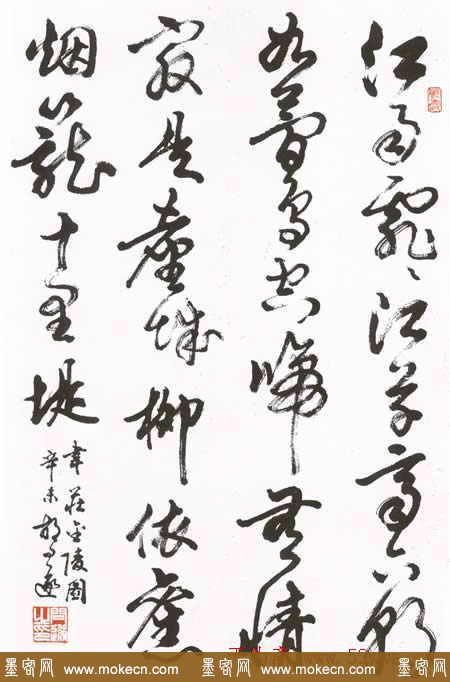 江雨霏〻江草齊六朝
如夢鳥空啼無情
最是臺城柳依舊
烟籠十里堤
韋莊金陵圖
辛未胡問遂
墨客网 www.mokecn.com 墨客网 www.mokecn.com 墨客网